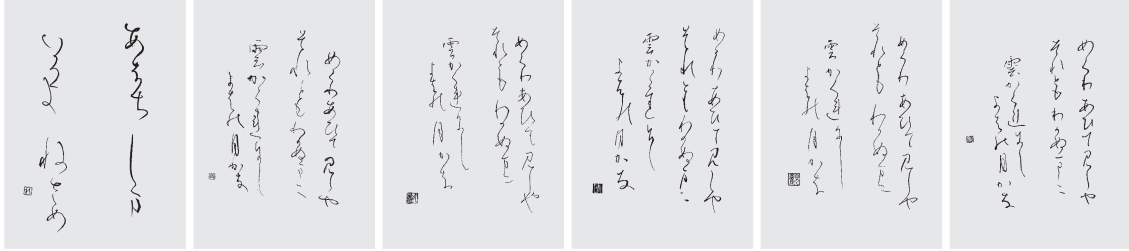 めくりあひて見しや
それともわかぬまに
雲かくれにし
よはの月かな
めくりあひて見しや
それともわかぬまに
雲かくれにし
よはの月かな
めくりあひて見しや
それともわかぬまに
雲かくれにし
よはの月かな
めくりあひて見しや
それともわかぬまに
雲かくれにし
よはの月かな
めくりあひて見しや
それともわかぬまに
雲かくれにし
よはの月かな